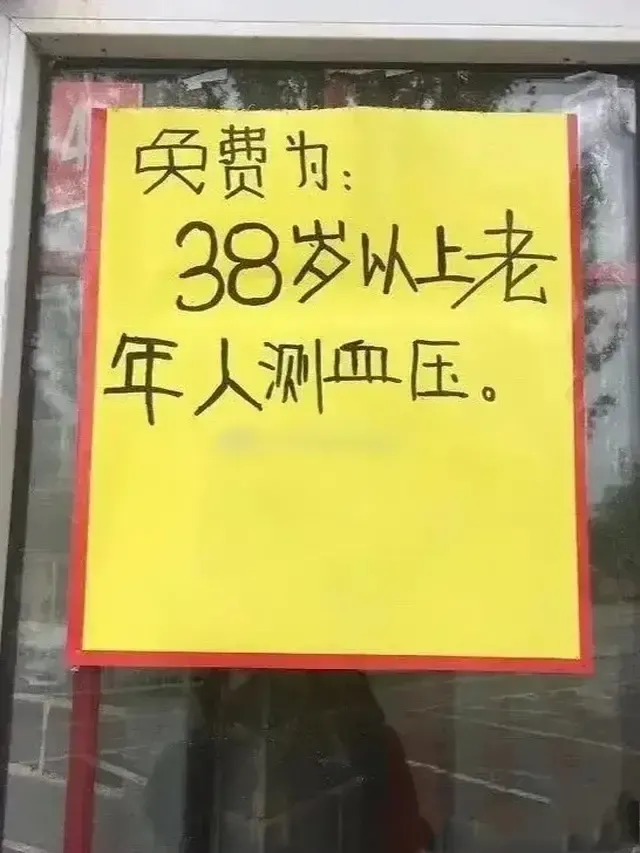 免费为:
38岁以上老
年人测血压。
4